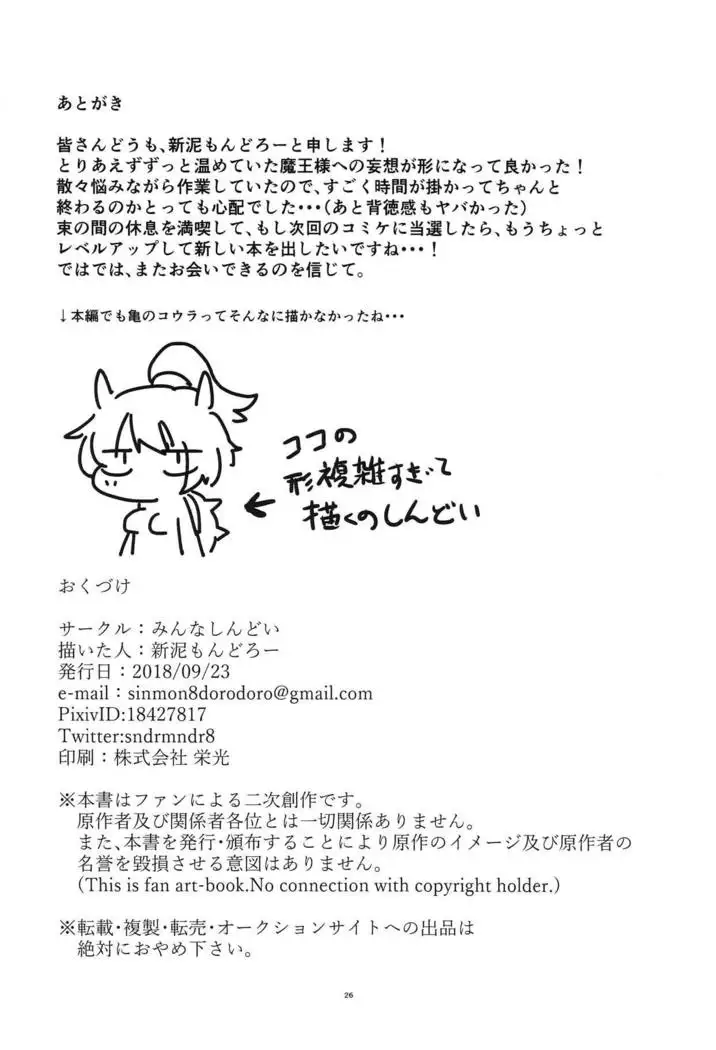 あとがき
皆さんどうも、新泥もんどろーと申します！
とりあえずずっと温めていた魔王様への妄想が形になって良かった！
散々悩みながら作業していたので、すごく時間が掛かってちゃんと
終わるのかとっても心配でした・・・（あと背徳感もヤバかった）
束の間の休息を満喫して、もし次回のコミケに当選したら、もうちょっと
レベルアップして新しい本を出したいですね・・・！
ではでは、またお会いできるのを信じて。
↓本編でも亀のコウラってそんなに描かなかったね・・・
ココの
形複雑すぎて
描くのしんどい
おくづけ
サークル：みんなしんどい
描いた人：新泥もんどろー
発行日：2018/09/23
e-mail：sinmon8dorodoro@gmail.com
PixivID:18427817
Twitter:sndrmndr8
印刷：株式会社 栄光
※本書はファンによる二次創作です。
原作者及び関係者各位とは一切関係ありません。
また、本書を発行・頒布することにより原作のイメージ及び原作者の
名誉を毀損させる意図はありません。
（This is fan art-book.No connection with copyright holder.）
※転載・複製・転売・オークションサイトへの出品は
絶対におやめ下さい。
26